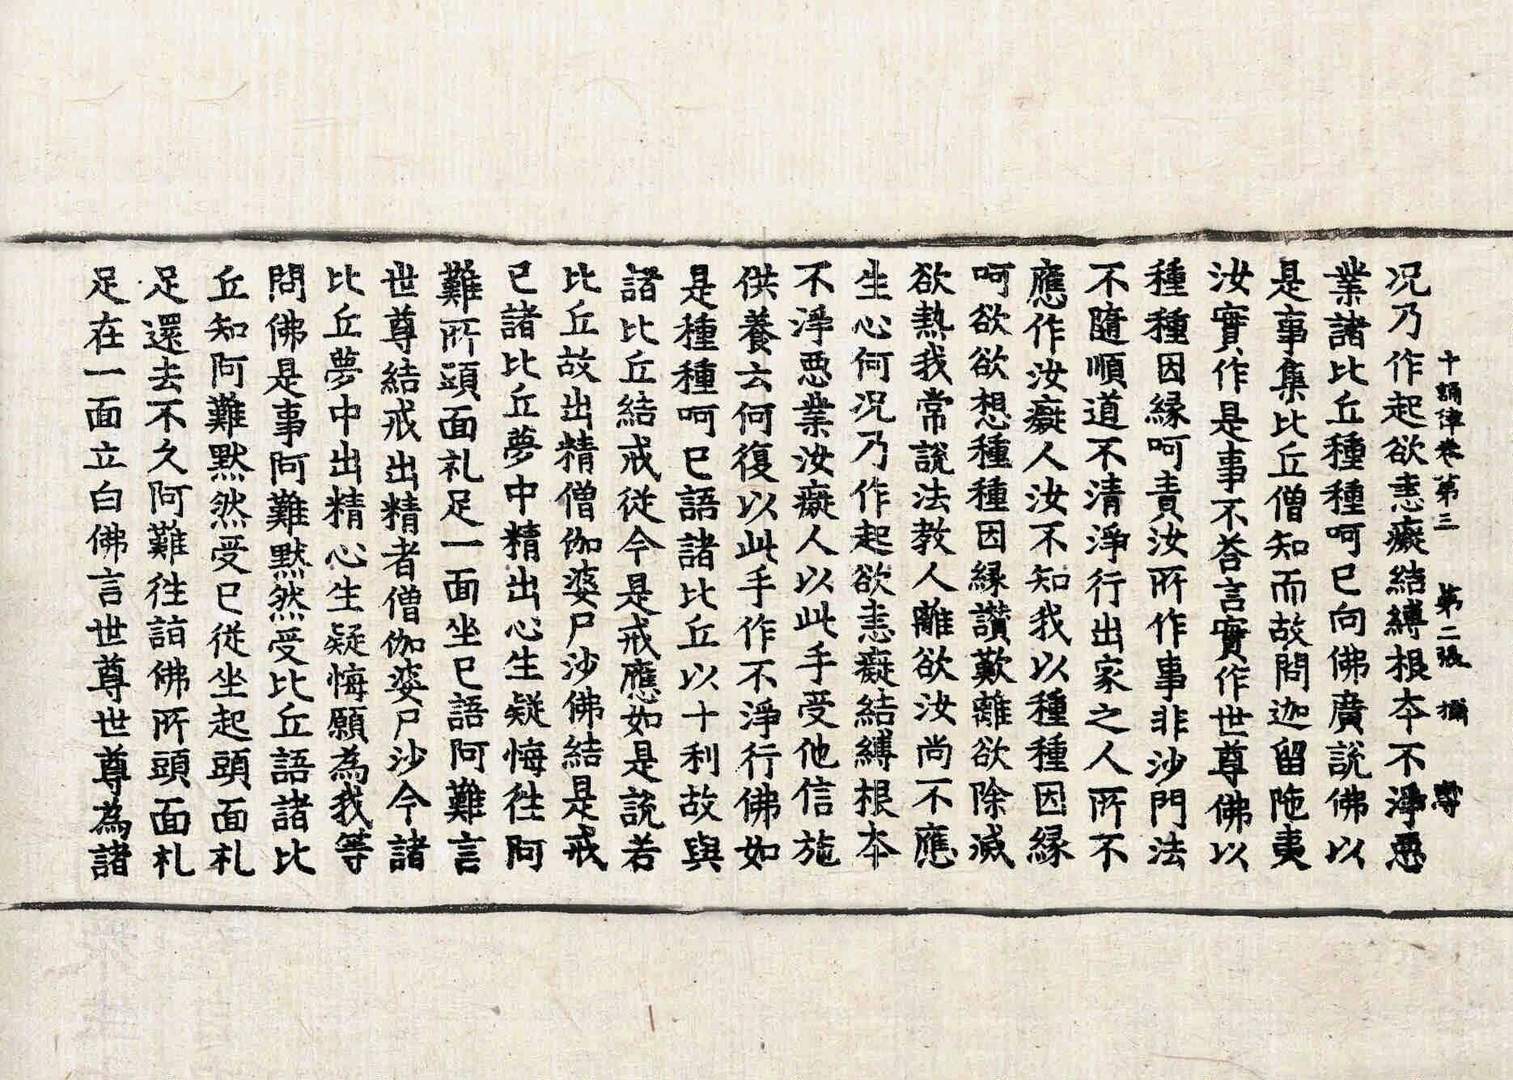 十誦律卷第三 第二張 攝
况乃作起欲恚癡結縛根本不淨惡
業諸比丘種種呵已向佛廣說佛以
是事集比丘僧知而故問迦留陁夷
汝實作是事不荅言實作世尊佛以
種種因緣呵責汝所作事非沙門法
不隨順道不清淨行出家之人所不
應作汝癡人汝不知我以種種因緣
呵欲欲想種種因緣讚歎離欲除滅
欲熱我常說法教人離欲汝尚不應
生心何況乃作起欲恚癡結縛根本
不淨惡業汝癡人以此手受他信施
供養云何復以此手作不淨行佛如
是種種呵已語諸比丘以十利故與
諸比丘結戒従今是戒應如是說若
比丘故出精僧伽婆尸沙佛結是戒
已諸比丘夢中精出心生疑悔徃阿
難所頭面礼足一面坐已語阿難言
世尊結戒出精者僧伽婆尸沙今諸
比丘夢中出精心生疑悔願為我等
問佛是事阿難默然受比丘語諸比
丘知阿難默然受已従坐起頭面礼
足還去不久阿難徃詣佛所頭面礼
足在一面立白佛言世尊世尊為諸